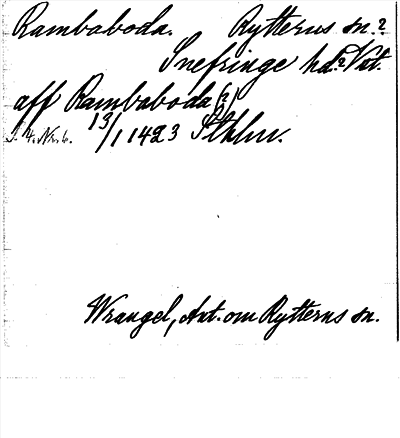 Rambaboda. Rytterns sn.?
Snefringe hd.? Vstl.
aff Rambaboda (?)
13/1 1423 Sthlm.
Wrangel, Ant. om Rytterns sn.